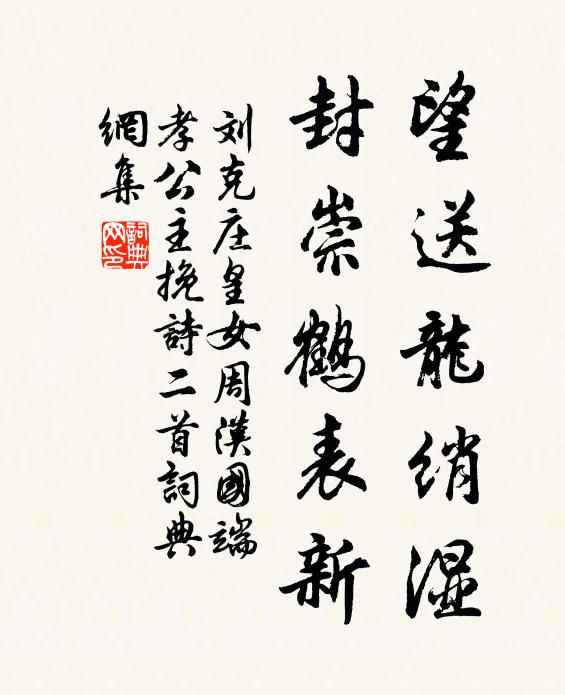 望送龍綃湿
封崇鶴表新
刘克庄皇女周漢國端
孝公主挽詩二首詞典
網集
詞典
网印